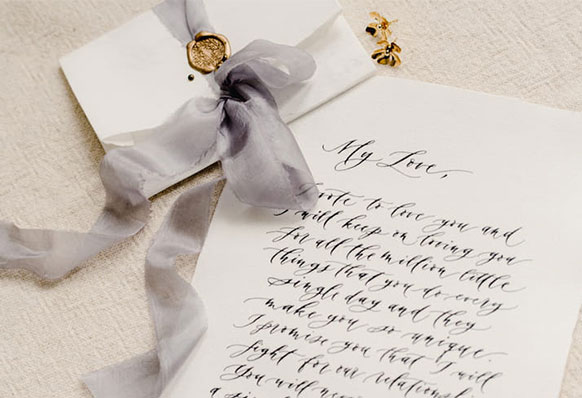 My Love,
to love you and
I will keep on loving you
for all the million little
things that you do every
single day and they
make you so unique.
I promise you that I will
fight for our relationsh
You will